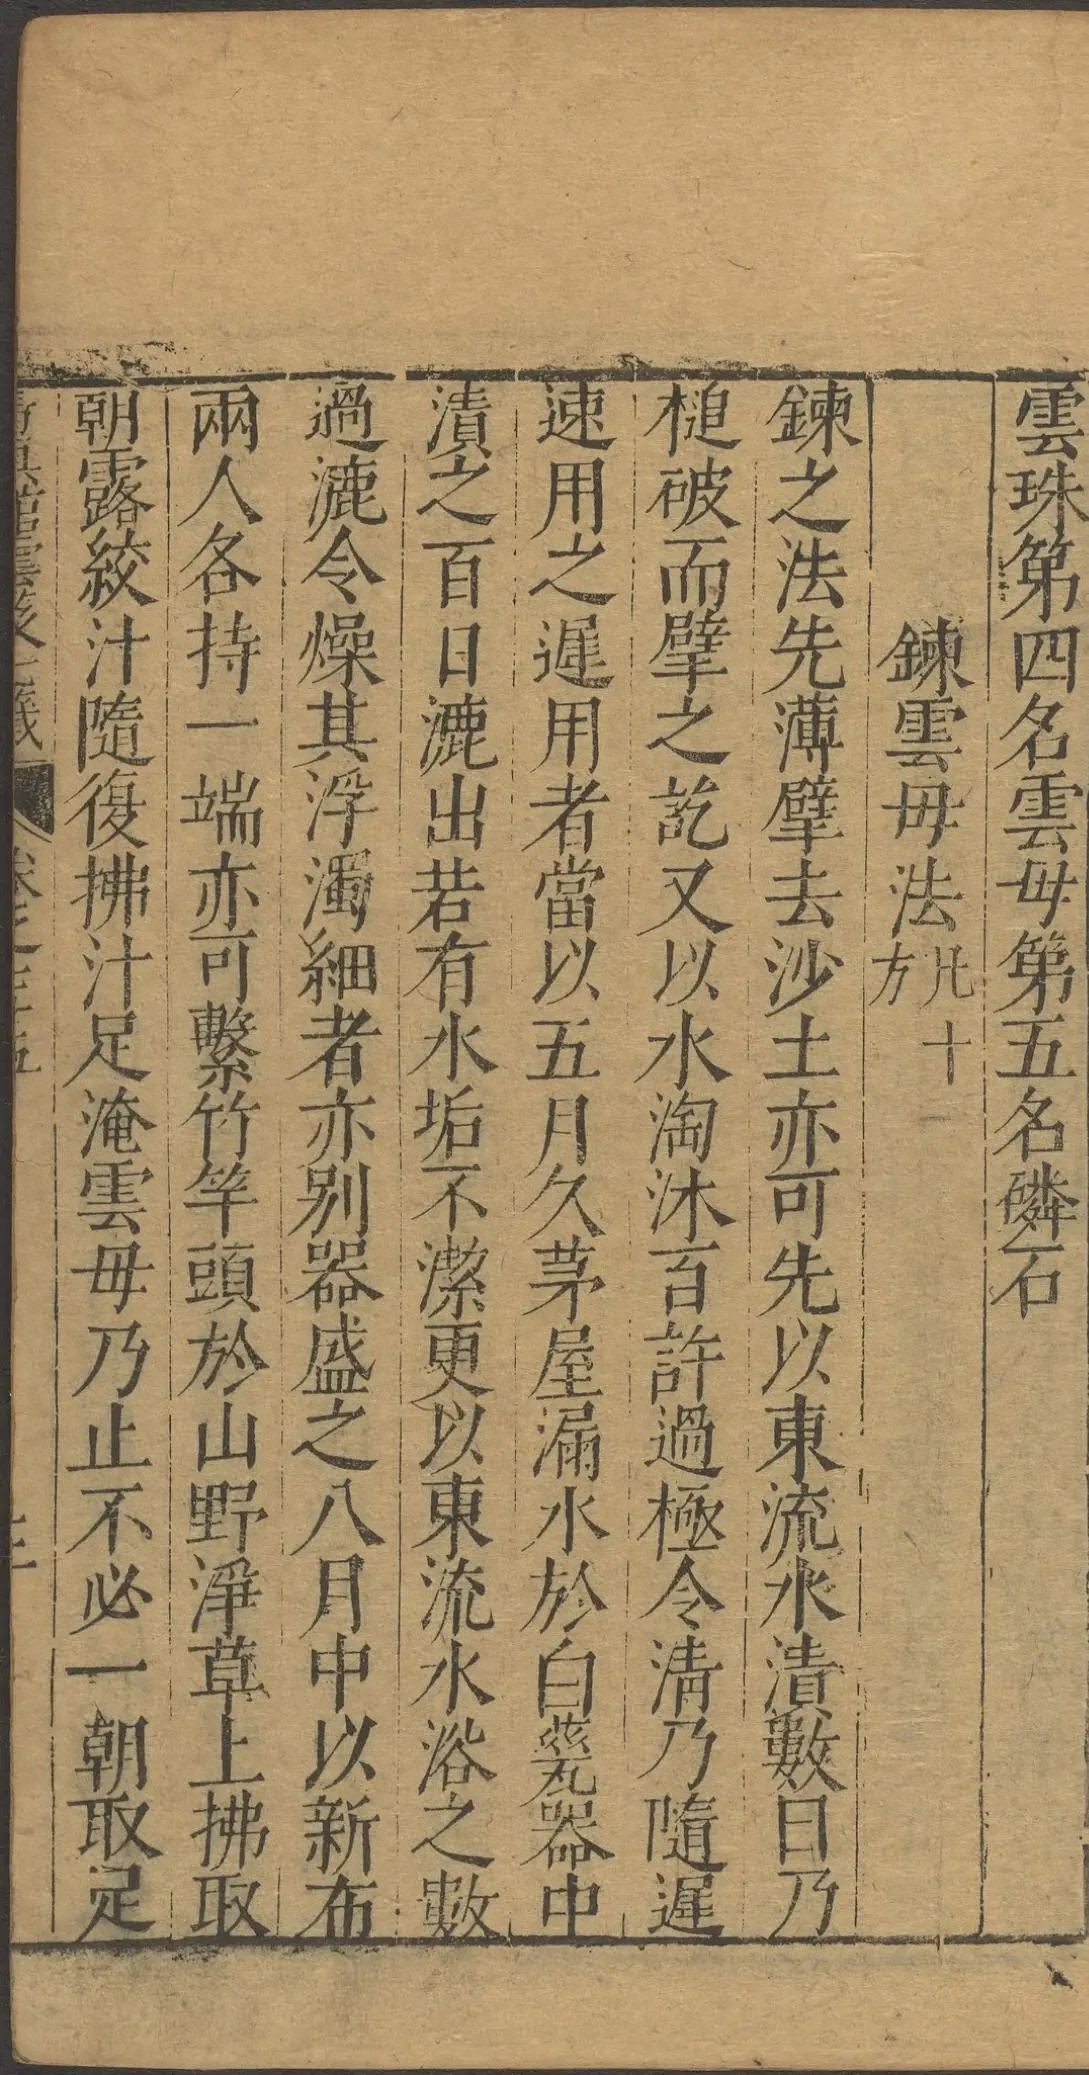 雲珠第四名雲母第五名磷石
鍊雲母法凡十方
鍊之法先薄擘去沙土亦可先以東流水漬數日乃
槌破而擘之訖又以水淘沐百許過極令清乃隨遲
速用之遲用者當以五月久茅屋漏水於白甆器中
漬之百日漉出若有水垢不潔更以東流水浴之數
過漉令燥其浮濁細者亦別器盛之八月中以新布
兩人各持一端亦可繫竹竿頭於山野淨草上拂取
朝露絞汁隨復拂汁足淹雲母乃止不必一朝取足